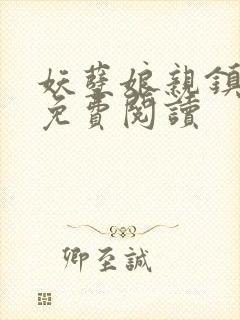 妖孽娘親鎮
免費閱讀
卿至誠